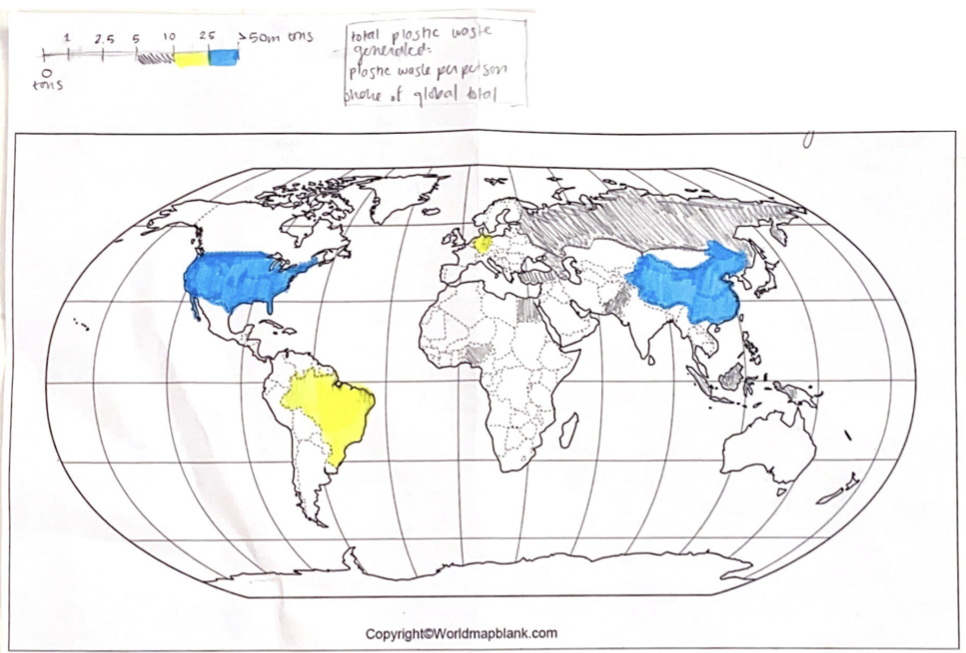 1 2.5 5 10 25 >50m tons
0
tons
total plastic waste
generated:
plastic waste per person
share of global total
Copyright©Worldmapblank.com